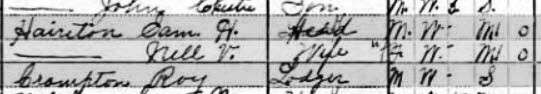 John Son M. W. S.
Hairston Sam H. Head M. W. M 0
—— Nell V. Wife F W. M 0
Crompton Roy Lodger M W. S